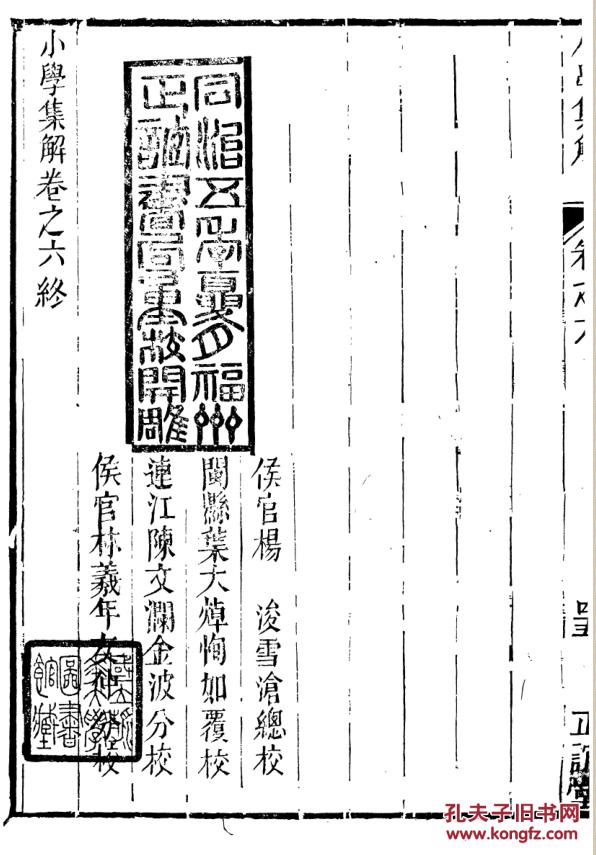 小學集解
卷之六
同治五年夏月福州
正誼書局重校開雕
侯官楊　浚雪滄總校
閩縣葉大焯恂如覆校
連江陳文瀾金波分校
侯官林羲年分校
小學集解卷之六終
大學
圖書
館藏
孔夫子旧书网
www.kongfz.com